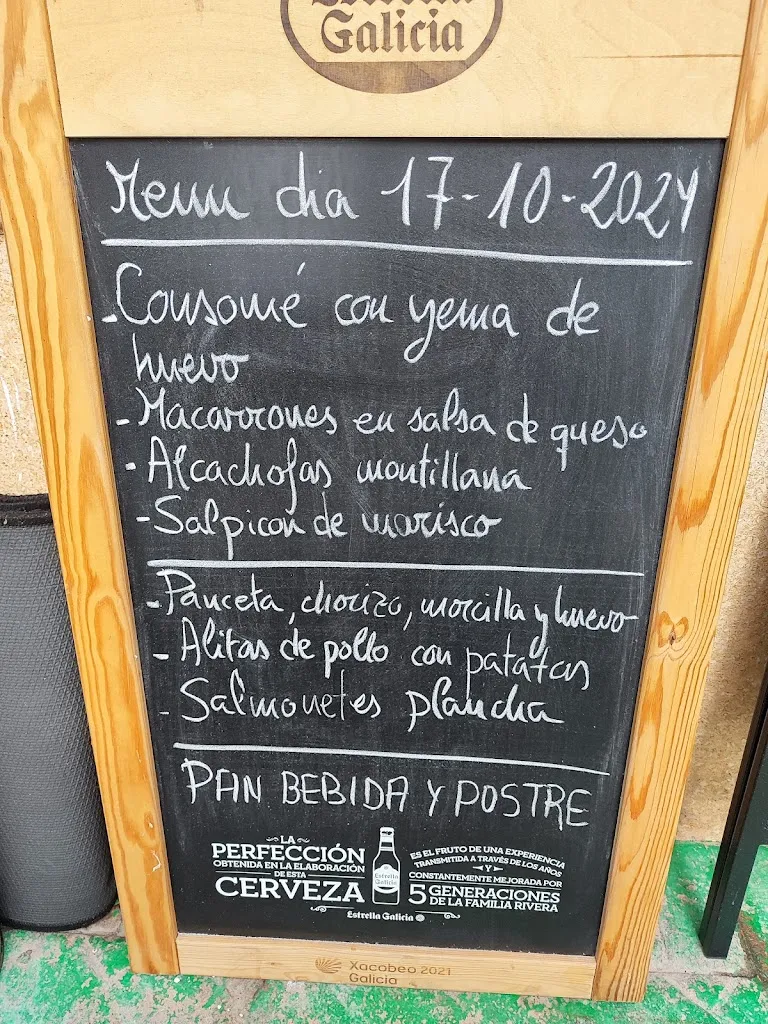 Estrella
Galicia
Menu dia 17-10-2024
-Consomé con yema de
huevo
-Macarrones en salsa de queso
-Alcachofas montillana
-Salpicon de marisco
-Panceta, chorizo, morcilla y huevo
-Alitas de pollo con patatas
-Salmonetes plancha
PAN BEBIDA Y POSTRE
LA
PERFECCIÓN
OBTENIDA EN LA ELABORACIÓN
DE ESTA
CERVEZA
Estrella
Galicia
ES EL FRUTO DE UNA EXPERIENCIA
TRANSMITIDA A TRAVÉS DE LOS AÑOS
Y
CONSTANTEMENTE MEJORADA POR
5 GENERACIONES
DE LA FAMILIA RIVERA
Estrella Galicia
Xacobeo 2021
Galicia